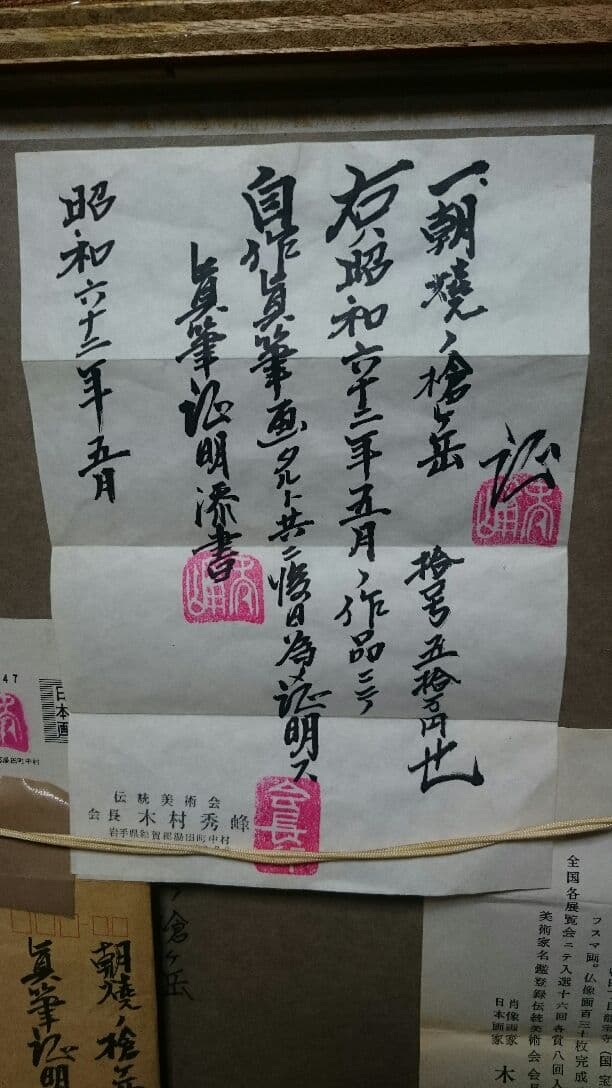 証
一、朝焼ノ槍ヶ岳 拾号五拾万円也
右ハ昭和六十二年五月ノ作品ニテ
自作眞筆画タルト共ニ後日為メ証明ス
眞筆証明添書
昭和六十二年五月
伝統美術会
会長 木村秀峰
岩手県和賀郡湯田町中村
会長印
47
日本画
朝焼ノ槍ヶ岳
眞筆証明
ノ槍ヶ岳
フスマ画。仏像画百三十枚完成
全国各展覧会ニテ入選十六回各賞八回入
美術家名鑑登録伝統美術会 会
肖像画家
日本画家 木